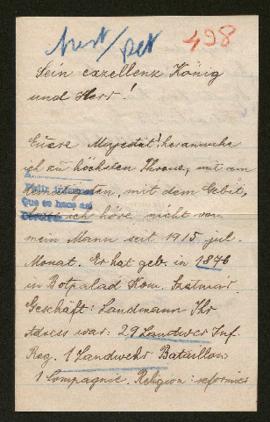 498
Sein exzellenz König
und Herr!
Euere Majestät!
ich zu höchsten Throne, mit am
mit dem Gebit,
ich höre nicht von
mein Mann seit 1915. jul.
Monat. Er hat geb. in 1876
in Botpalad Kom. Szatmár
Geschäft: Landmann Ihr
Adress war: 29 Landwer Inf.
Reg. 1 Landwehr Bataillon
1 Compagnie. Religion: